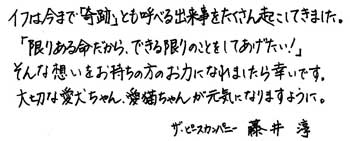 イフは今まで「奇跡」とも呼べる出来事をたくさん起こしてきました。
「限りある命だから、できる限りのことをしてあげたい!」
そんな想いをお持ちの方のお力になれましたら幸いです。
大切な愛犬ちゃん、愛猫ちゃんが元気になりますように。
ザ・ピースカンパニー 藤井 淳